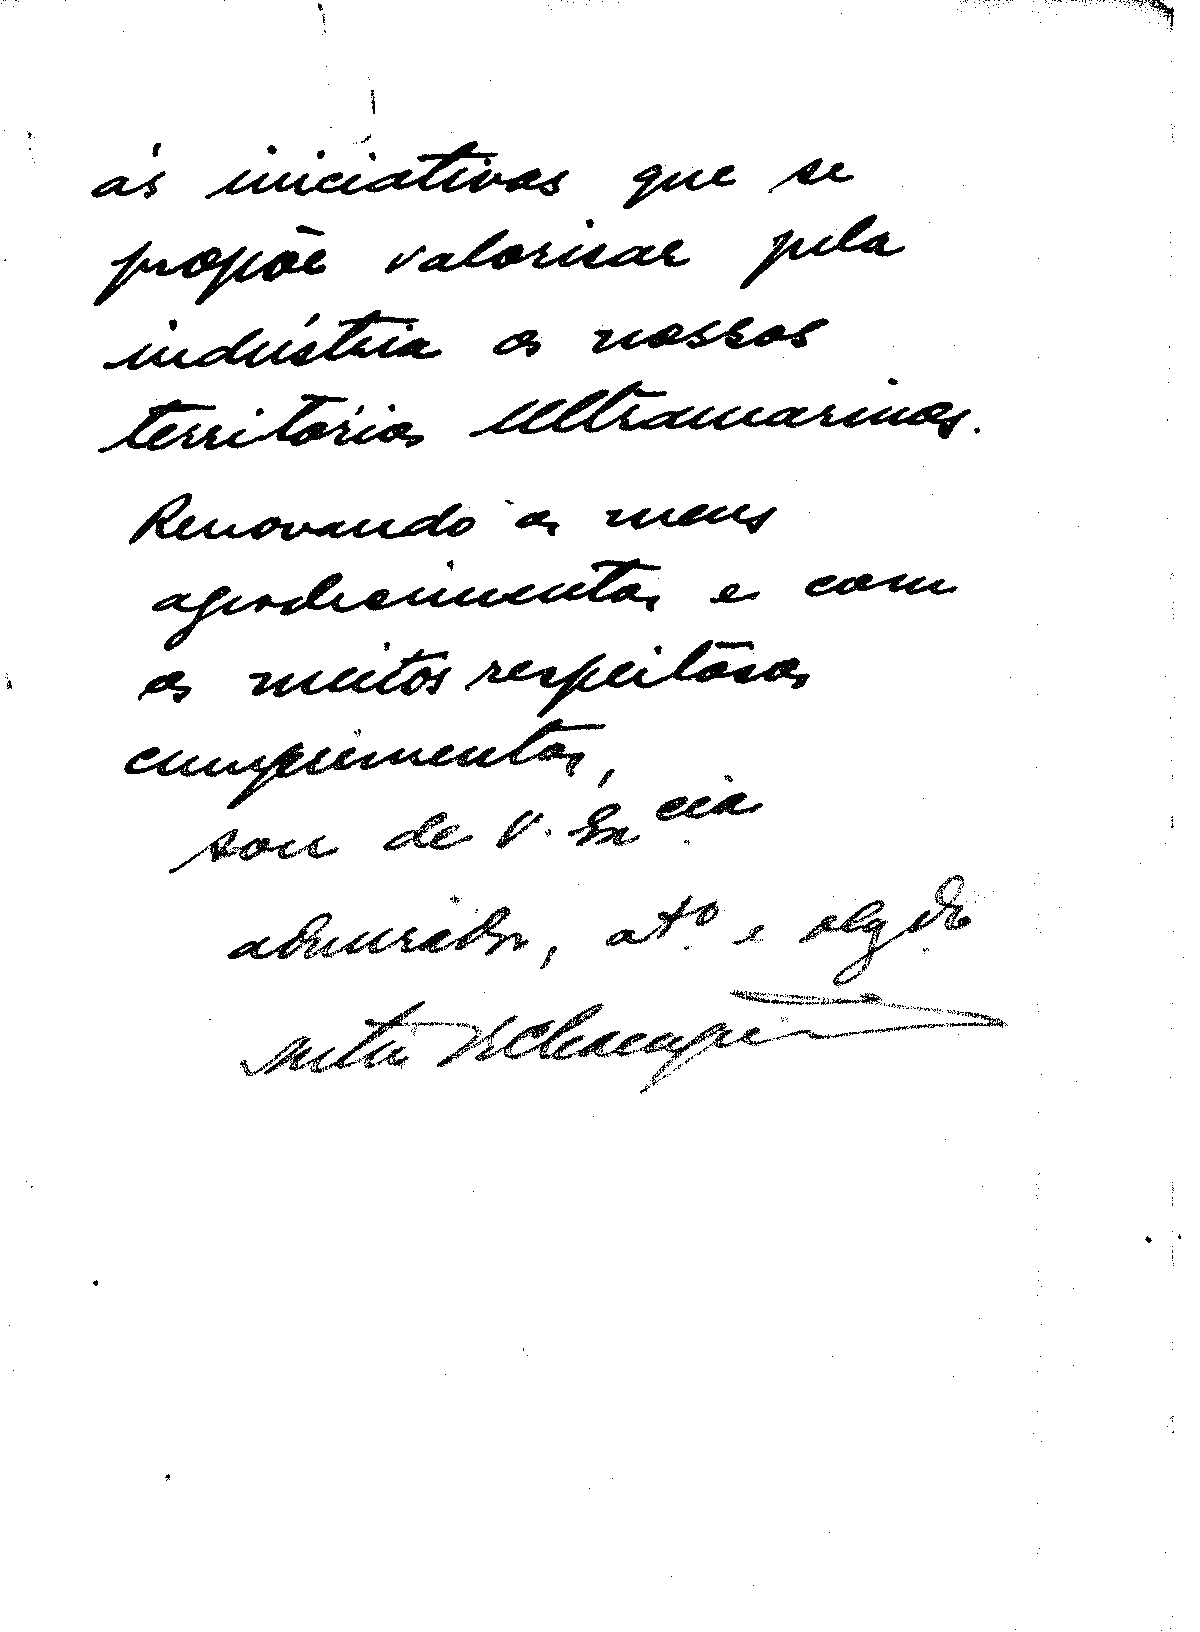 ás iniciativas que se
propõe valorisar pela
indústria os nossos
territórios Ultramarinos.
Renovando os meus
agradecimentos e com
os muitos respeitosos
cumprimentos,
sou de V. Excia
admirador, atº e obgdo